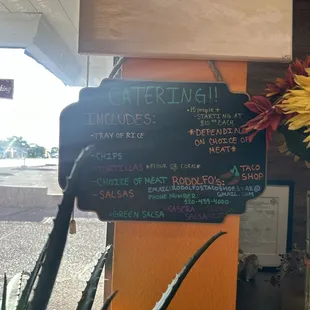 CATERING!!
INCLUDES:
•TRAY OF RICE
•CHIPS
•TORTILLAS *FLOUR OR CORN*
•CHOICE OF MEAT
•SALSAS
•GREEN SALSA
STARTING AT
*DEPENDING
ON CHOICE OF
MEAT*
RODOLFO'S TACO
SHOP
PHONE NUMBER
520-499-4000